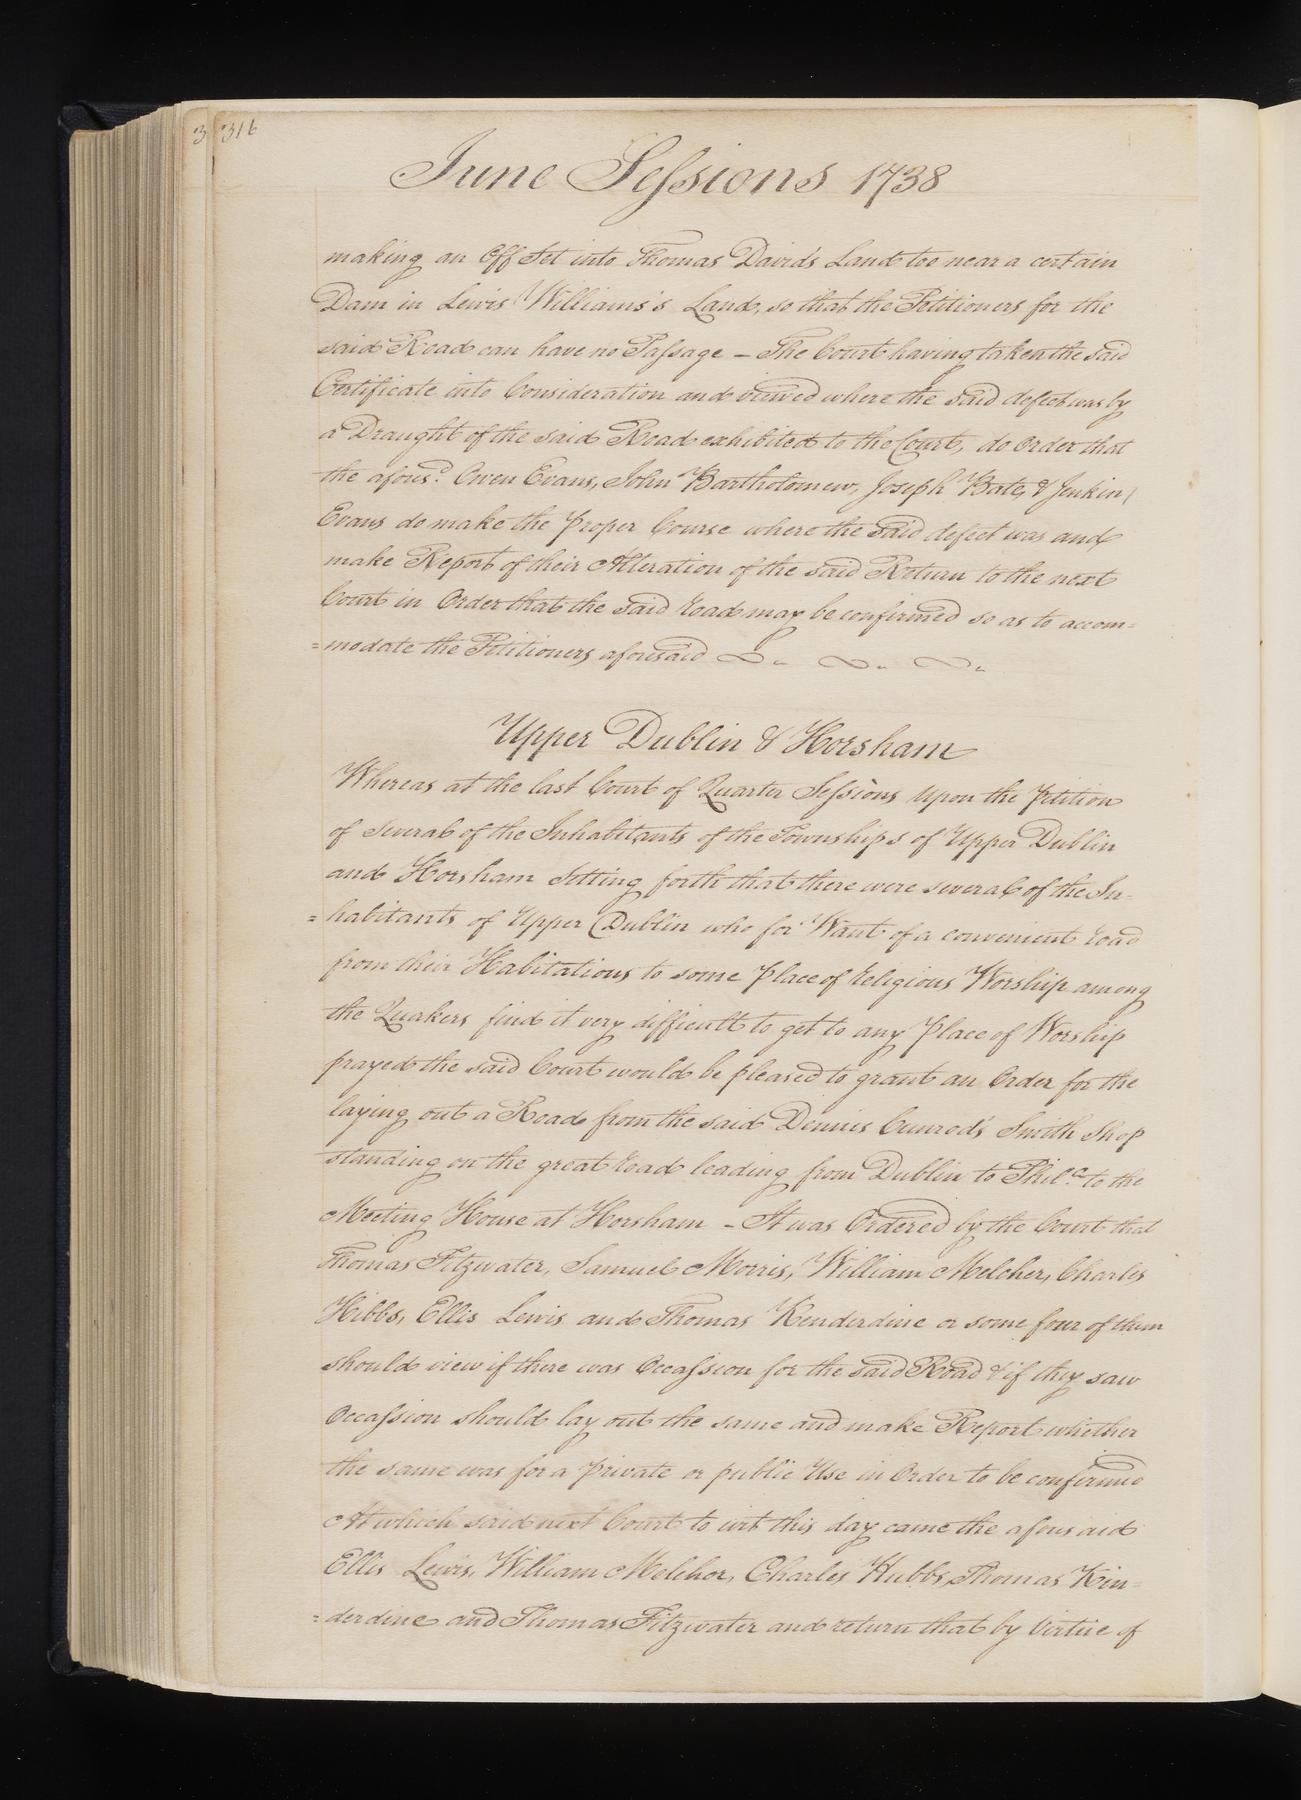 3 316
June Sessions 1738
making an Off Set into Thomas David's Land too near a certain
Dam in Lewis Williams's Land, so that the Petitioners for the
said Road can have no Passage - The Court having taken the said
Certificate into Consideration and viewed where the said defect was by
a Draught of the said Road exhibited to the Court, do Order that
the afores.d Owen Evans, John Bartholomew, Joseph Bate, & Jenkin
Evans do make the proper Course where the said defect was and
make Report of their Alteration of the said Return to the next
Court in Order that the said road may be confirmed so as to accom=
=modate the Petitioners aforesaid
Upper Dublin & Horsham
Whereas at the last Court of Quarter Sessions upon the petition
of several of the Inhabitants of the Townships of Upper Dublin
and Horsham Setting forth that there were several of the In-
=habitants of Upper Dublin who for Want of a convenient road
from their Habitations to some place of religious Worship among
the Quakers find it very difficult to get to any Place of Worship
prayed the said Court would be pleased to grant an Order for the
laying out a Road from the said Dennis Cunrod's Smith Shop
standing on the great road leading from Dublin to Phil.a to the
Meeting House at Horsham - It was Ordered by the Court that
Thomas Fitzwater, Samuel Morris, William Melcher, Charles
Hibbs, Ellis Lewis and Thomas Kenderdine or some four of them
should view if there was Occassion for the said Road & if they saw
Occassion should lay out the same and make Report whether
the same was for a private or public Use in Order to be confirmed
At which said next Court to wit this day came the aforesaid
Ellis Lewis, William Melchor, Charles Hubbs, Thomas Kin=
=derdine and Thomas Fitzwater and return that by Virtue of